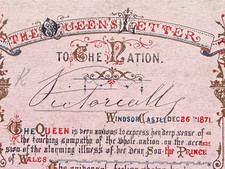 THE QUEENS LETTER
TO THE NATION.
WINDSOR CASTLE DEC 26TH 1871.
THE QUEEN is very anxious to express her deep sense of
the touching sympathy of the whole nation on the occa
sion of the alarming illness of her dear Son the PRINCE
OF WALES